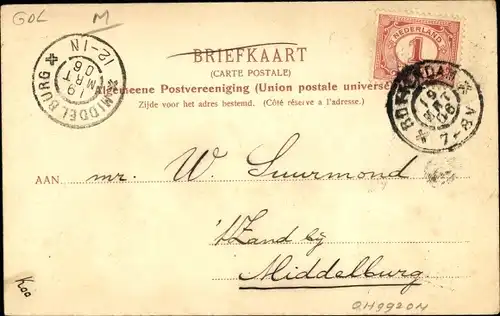 GOL M
BRIEFKAART
(CARTE POSTALE)
Algemeene Postvereeniging (Union postale universe
Zijde voor het adres bestemd. (Côté réserve a l'adresse.)
NEDERLAND
1
ROTTERDAM
19
MRT
06
7-8V
MIDDELBURG
19
MRT
06
12-1N
AAN mr. W. Suurmond
't Zand bij
Middelburg.
Koo
QH9920M